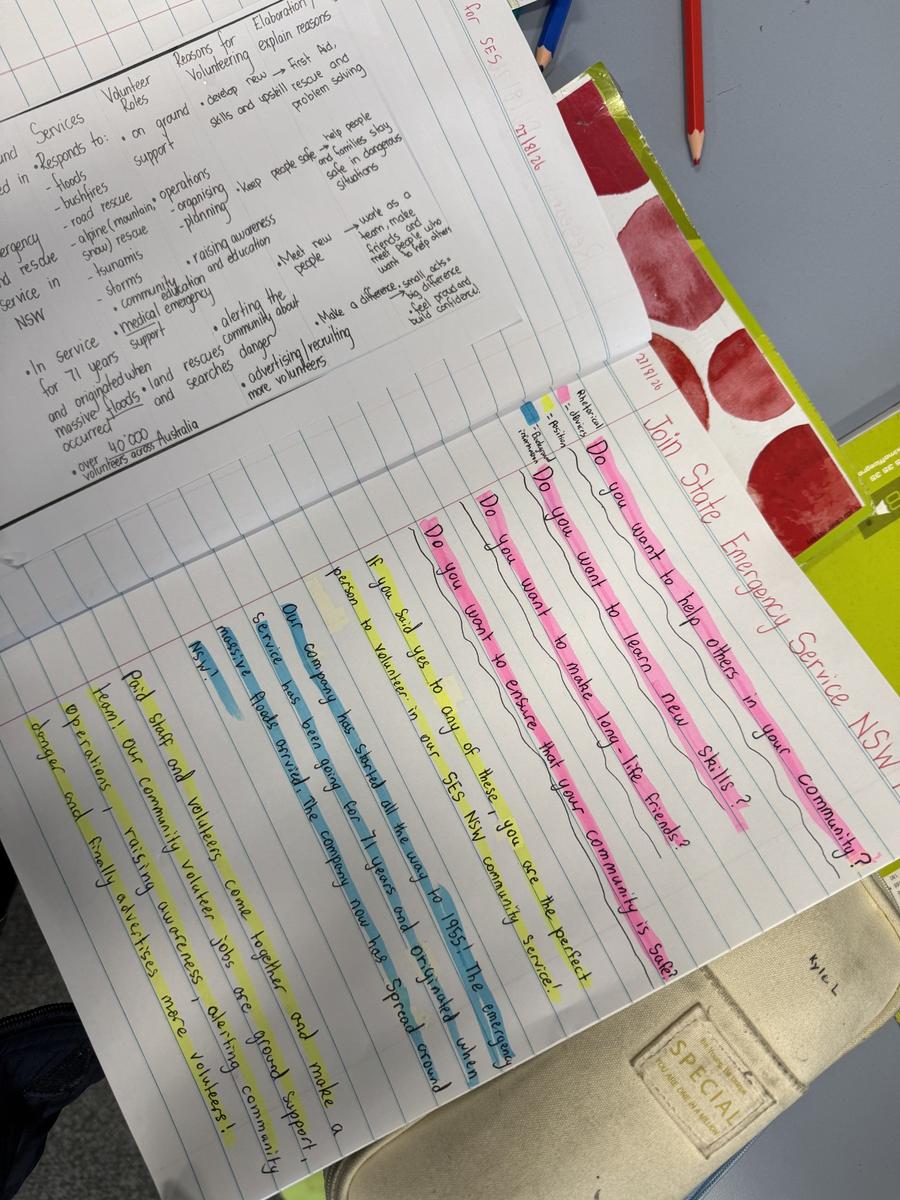 for SES
27/8/26
und Services
Volunteer
Roles
Reasons for
Volunteering
Elaboration /
explain reasons
ed in
ergency
nd rescue
service in
NSW
• In service
for 71 years
and originated when
massive floods
occurred
• over 40'000
volunteers across Australia
• Responds to:
- floods
- bushfires
- road rescue
- alpine (mountain,
snow) rescue
- tsunamis
- storms
• community
education and education
• medical emergency
support
• land rescues
and searches
• on ground
support
• operations
- organising
- planning
• raising awareness
• alerting the
community about
danger
• advertising / recruiting
more volunteers
• develop new
skills and upskill
→ First Aid,
rescue and
problem solving
• Keep people safe
→ help people
and families stay
safe in dangerous
situations
• Meet new
people
→ work as a
team, make
friends and
meet people who
want to help others
• Make a difference
→ small acts =
big difference
• feel proud and
build confidence!
27/8/26
Join State Emergency Service NSW
Rhetorical
= devices
= Position
= Background
information
Do you want to help others in your community?
Do you want to learn new skills?
Do you want to make long-life friends?
Do you want to ensure that your community is safe?
If you said yes to any of these, you are the perfect
person to volunteer in our SES NSW community service!
Our company has started all the way to 1955! The emergency
service has been going for 71 years and originated when
massive floods arrived. The company now has spread around
NSW!
Paid staff and volunteers come together and make a
team! Our community volunteer jobs are ground support,
operations, raising awareness, alerting community
danger and finally advertises more voluteers!
Kyle L
SPECIAL
YOU ARE ONE IN A MILLION